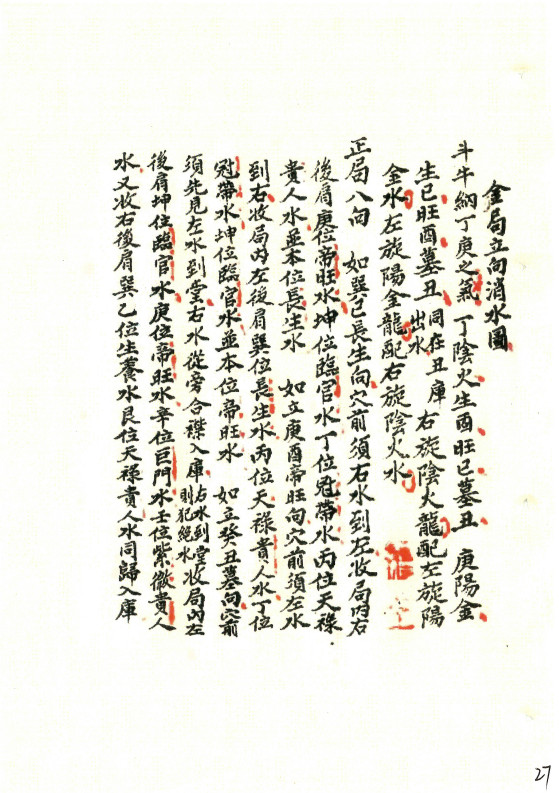 金局立向消水圖
斗牛納丁庚之氣 丁陰火生酉旺巳墓丑 庚陽金
生巳旺酉墓丑 同在丑庫出水 右旋陰火龍配左旋陽
金水左旋陽金龍配右旋陰火水
正局八向 如巽巳長生向穴前須右水到左收局內右
後肩庚位帝旺水坤位臨官水丁位冠帶水丙位天祿
貴人水並本位長生水 如立庚酉帝旺向穴前須左水
到右收局內左後肩巽位長生水丙位天祿貴人水丁位
冠帶水坤位臨官水並本位帝旺水 如立癸丑墓向穴前
須先見左水到堂右水從旁合襟入庫 右水到堂則犯絕水 收局內左
後肩坤位臨官水庚位帝旺水辛位巨門水壬位紫微貴人
水又收右後肩巽乙位生養水艮位天祿貴人水同歸入庫
27